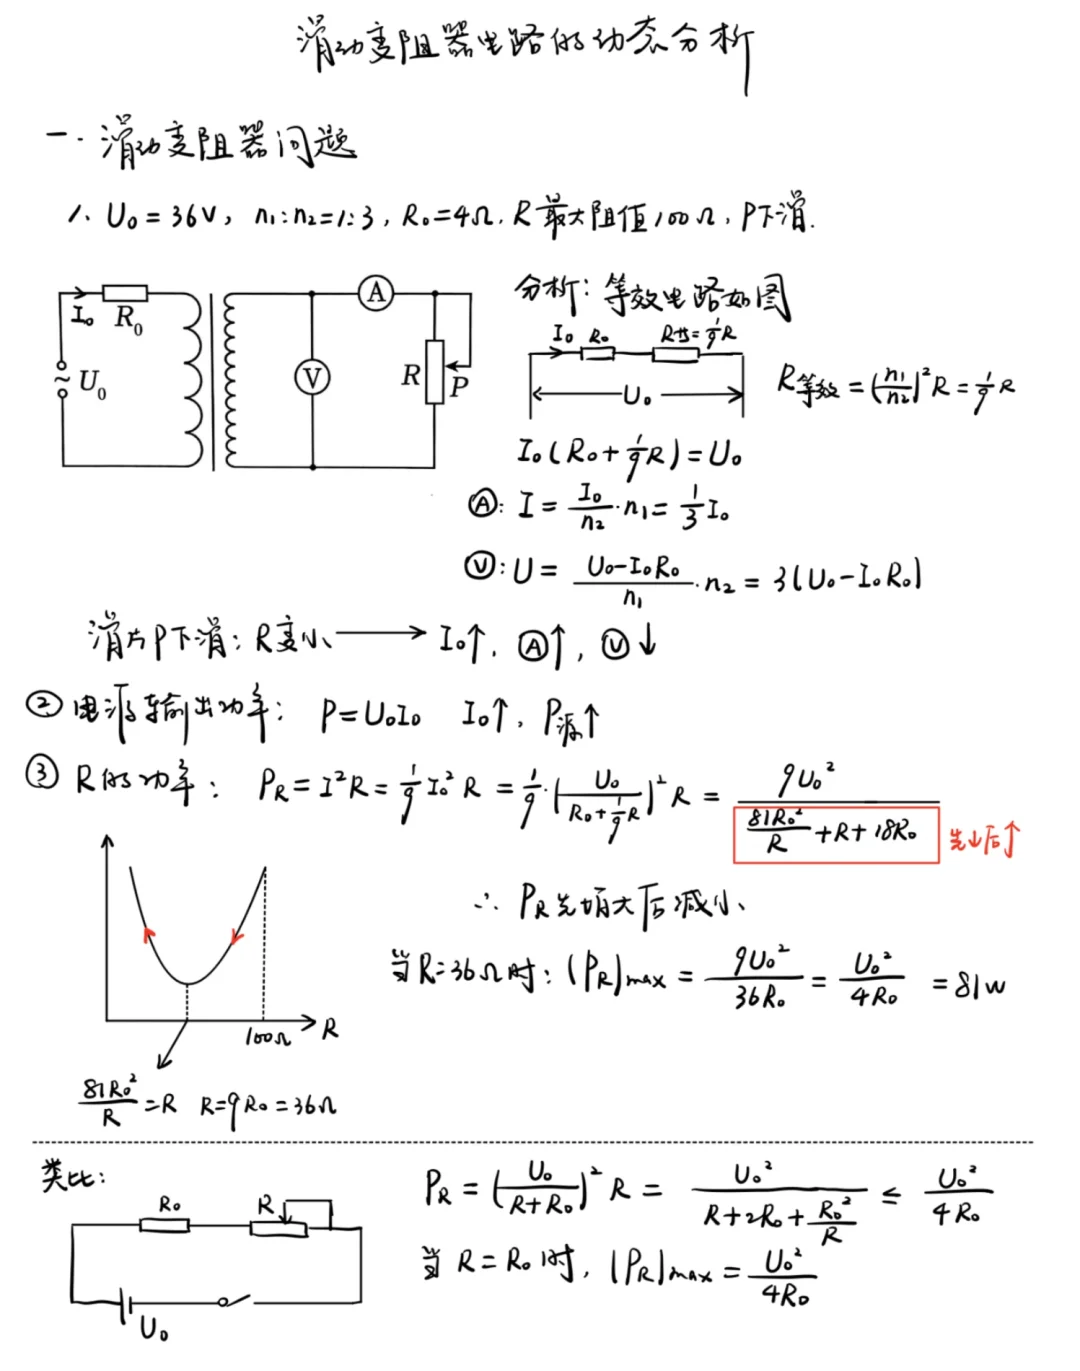 滑动变阻器电路的动态分析
一. 滑动变阻器问题
1. U₀=36V, n₁:n₂=1:3, R₀=4Ω, R最大阻值100Ω, P下滑.
分析: 等效电路如图
I₀ R₀ A R P V U₀ ~
I₀ R₀ R书=1/9R
U₀
R等效=(n₁/n₂)²R=1/9R
I₀(R₀+1/9R)=U₀
Ⓐ: I=I₀/n₂·n₁=1/3I₀
Ⓥ: U=(U₀-I₀R₀)/n₁·n₂=3(U₀-I₀R₀)
滑片P下滑: R变小⟶I₀↑, Ⓐ↑, Ⓥ↓
② 电源输出功率: P=U₀I₀ I₀↑, P源↑
③ R的功率: P_R=I²R=1/9I₀²R=1/9·(U₀/(R₀+1/9R))²R=9U₀²/(81R₀²/R+R+18R₀) 先↓后↑
∴ P_R先增大后减小、
当R=36Ω时: (P_R)max=9U₀²/36R₀=U₀²/4R₀=81w
100Ω R
81R₀²/R=R R=9R₀=36Ω
类比:
R₀ R U₀
P_R=(U₀/(R+R₀))²R=U₀²/(R+2R₀+R₀²/R)≤U₀²/4R₀
当R=R₀时, (P_R)max=U₀²/4R₀